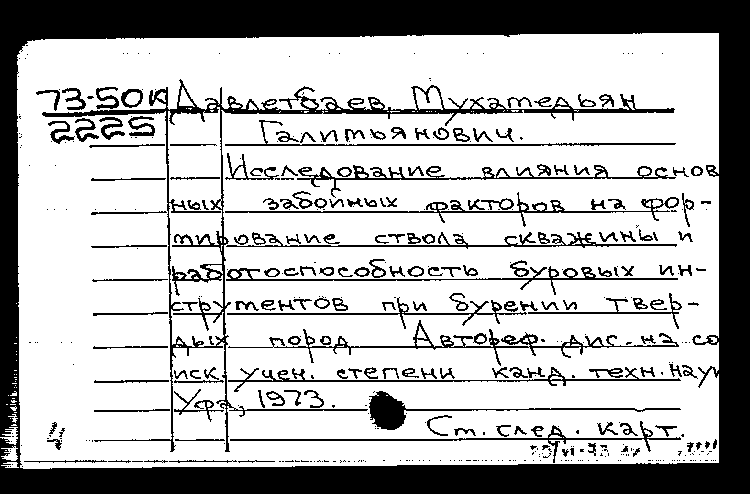 73-50к Давлетбаев, Мухамедьян
2225 Галитьянович.
Исследование влияния основ
ных забойных факторов на фор-
мирование ствола скважины и
работоспособность буровых ин-
струментов при бурении твер-
дых пород Автореф. дис. на со
иск. учен. степени канд. техн. наук
Уфа, 1973.
4 Ст. след. карт.